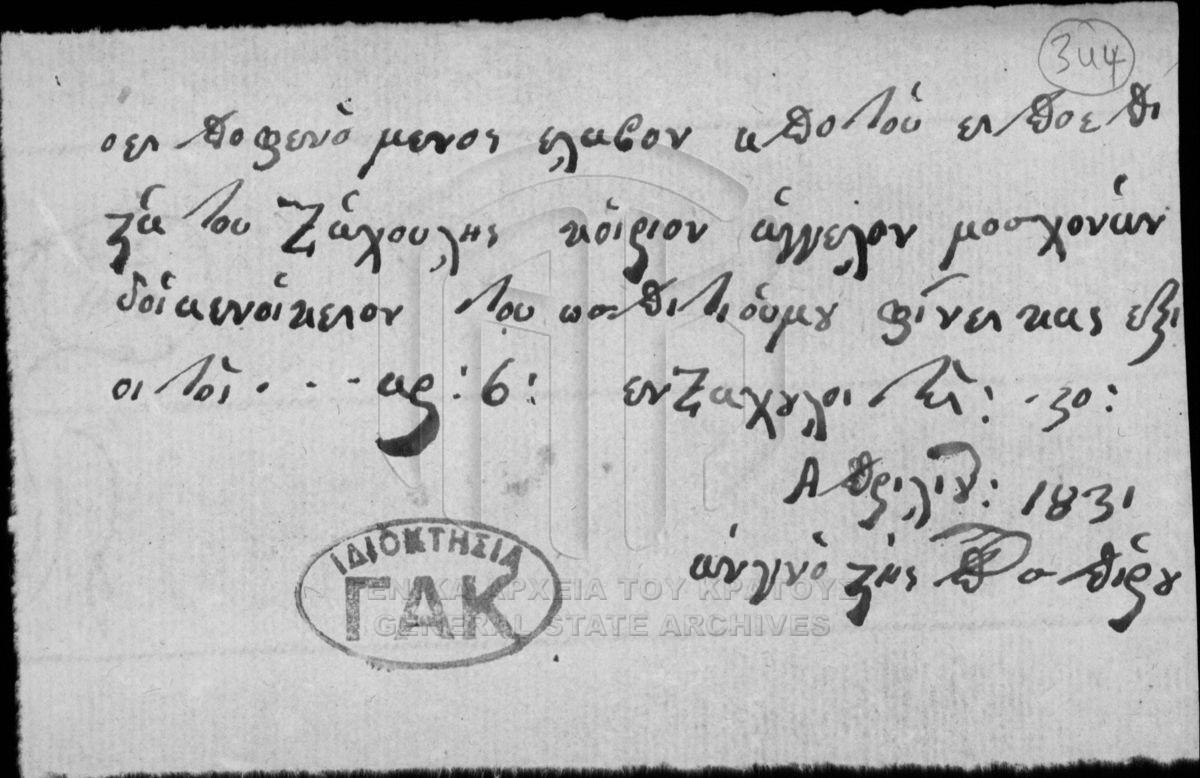 344
οει ποφενό μενος ελαβον απο τού ει ποε πι
ζά του Ζάχουλης κόιριον άγγελον μοσχονάν
δοία ενοίκειον του ωσπιτιόυμου φίνει κας εξι
οι τοί . . . αρ : 6 : εν Ζαχουλοι τεί : . 30 :
Απριλιου : 1831
άνγινό ζης
ΙΔΙΟΚΤΗΣΙΑ
ΓΑΚ
ΓΕΝΙΚΑ ΑΡΧΕΙΑ ΤΟΥ ΚΡΑΤΟΥΣ
GENERAL STATE ARCHIVES